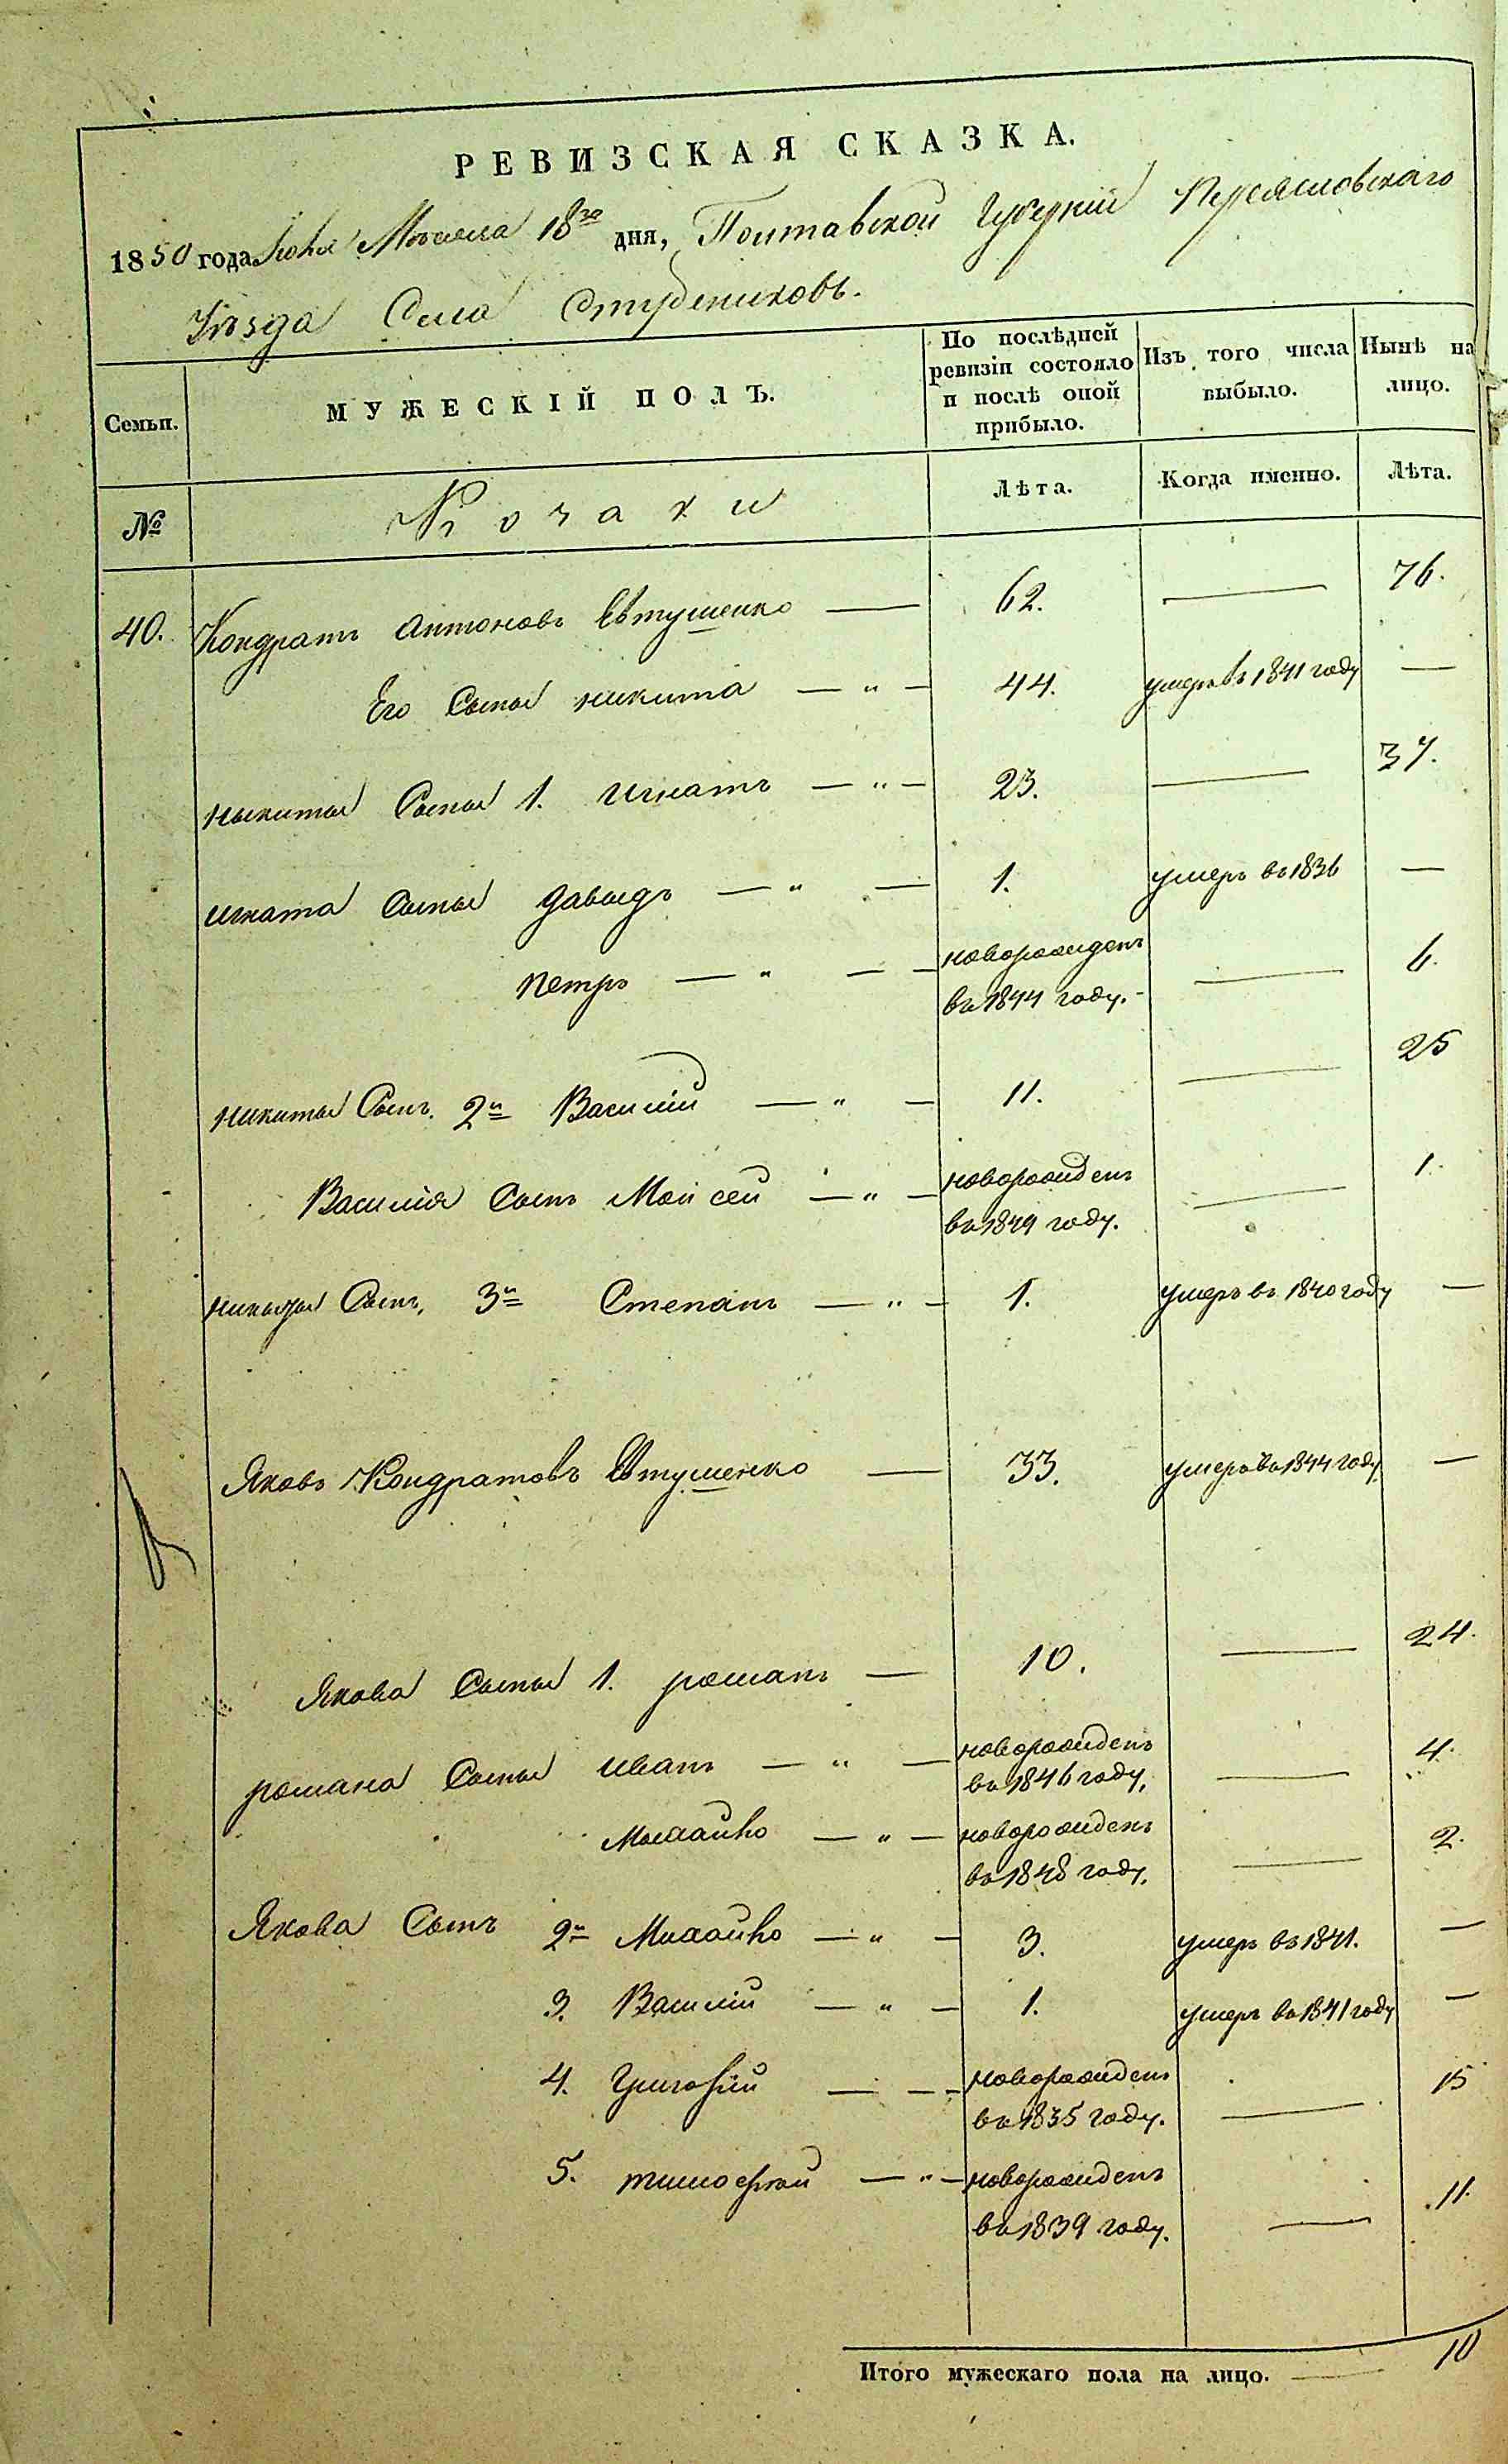 РЕВИЗСКАЯ СКАЗКА.
1850 года Іюня Месяца 18го дня, Полтавской Губерніи Переясловскаго
Уѣзда Села Студениковъ.
Семьи.
МУЖЕСКІЙ ПОЛЪ.
По послѣдней ревизіи состояло и послѣ оной прибыло.
Изъ того числа выбыло.
Нынѣ на лицо.
№
Козаки
Лѣта.
Когда именно.
Лѣта.
40. Кондратъ Антоновъ Евтушенко — 62. — 76.
Его Сынъ Никита — " — 44. умеръ въ 1841 году —
Никиты Сыны 1. Игнатъ — " — 23. — 37.
Игната Сыны Давыдъ — " — 1. умеръ въ 1836 —
Петръ — " — — новорожденъ въ 1844 году. — 6.
Никиты Сынъ. 2й Василій — " — 11. — 25
Василія Сынъ Моисей — " — новорожденъ въ 1849 году. — 1.
Никиты Сынъ, 3й Степанъ — " — 1. умеръ въ 1840 году —
Яковъ Кондратовъ Евтушенко — 33. умеръ въ 1844 году —
Якова Сыны 1. Романъ — 10. — 24.
Романа Сыны Иванъ — " — новорожденъ въ 1846 году, — 4.
Михайло — " — новорожденъ въ 1848 году, — 2.
Якова Сынъ 2й Михайло — " — 3. умеръ въ 1841. —
3. Василій — " — 1. умеръ въ 1841 году —
4. Григорій — — — новорожденъ въ 1835 году. — 15
5. Тимофей — " — новорожденъ въ 1839 году. — 11.
Итого мужескаго пола на лицо. — 10